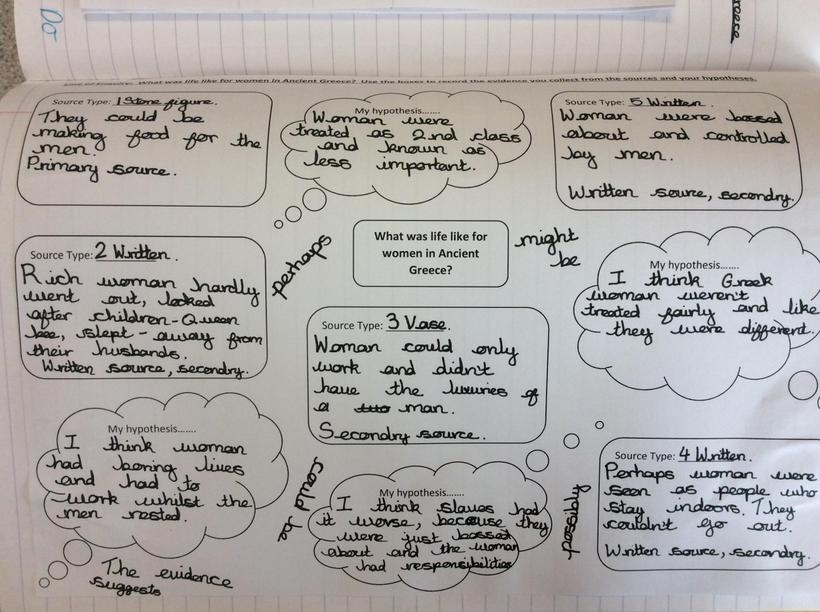 Do
reece
What was life like for women in Ancient Greece? Use the boxes to record the evidence you collect from the sources and your hypotheses.
Source Type: 1 Stone figure.
They could be
making food for the
men.
Primary source.
My hypothesis.......
Woman were
treated as 2nd class
and known as
less important.
Source Type: 5 Written.
Woman were bossed
about and controlled
by men.
Written source, secondry.
Source Type: 2 Written.
Rich woman hardly
went out, looked
after children-Queen
bee, slept - away from
their husbands.
Written source, secondry.
perhaps
What was life like for
women in Ancient
Greece?
might
be
My hypothesis.......
I think Greek
woman weren't
treated fairly and like
they were different.
Source Type: 3 Vase.
Woman could only
work and didn't
have the luxuries of
a man.
Secondry source.
My hypothesis.......
I think woman
had boring lives
and had to
work whilst the
men rested.
The evidence
suggests
could be
My hypothesis.......
I think slaves had
it worse, because they
were just bossed
about and the woman
had responsibilities
possibly
Source Type: 4 Written.
Perhaps woman were
seen as people who
stay indoors. They
couldn't go out.
Written source, secondry.